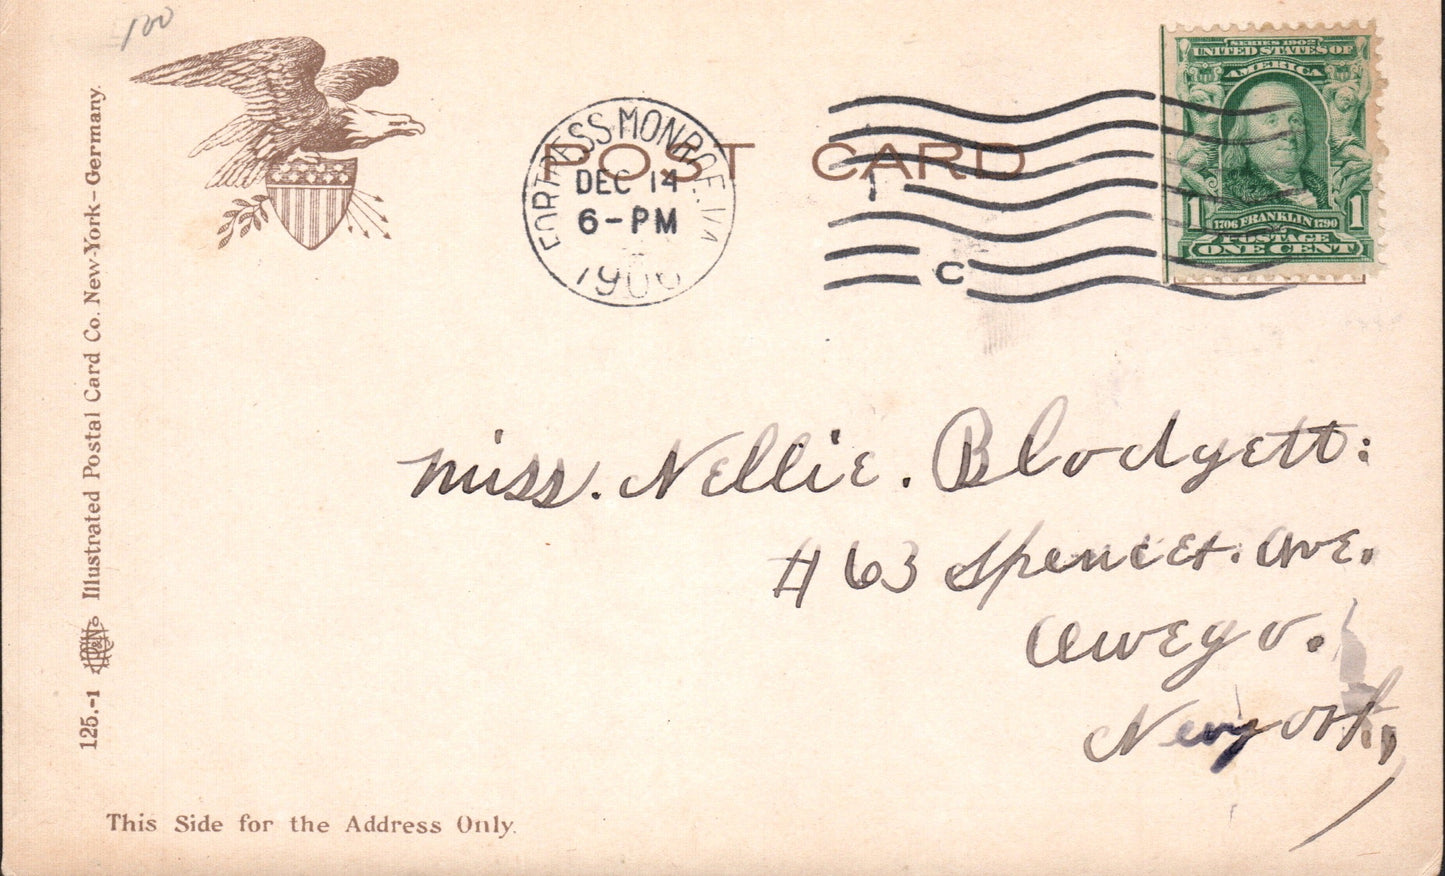 100
Illustrated Postal Card Co. New-York-Germany.
125.-1
POST CARD
FORTRESS MONROE. VA
DEC 14
6-PM
1906
1
C
SERIES 1902
UNITED STATES OF
AMERICA
1 1706 FRANKLIN 1790 1
POSTAGE
ONE CENT
Miss. Nellie. Blodgett:
# 63 Spencer. Ave.
Owego.
New York,
This Side for the Address Only.